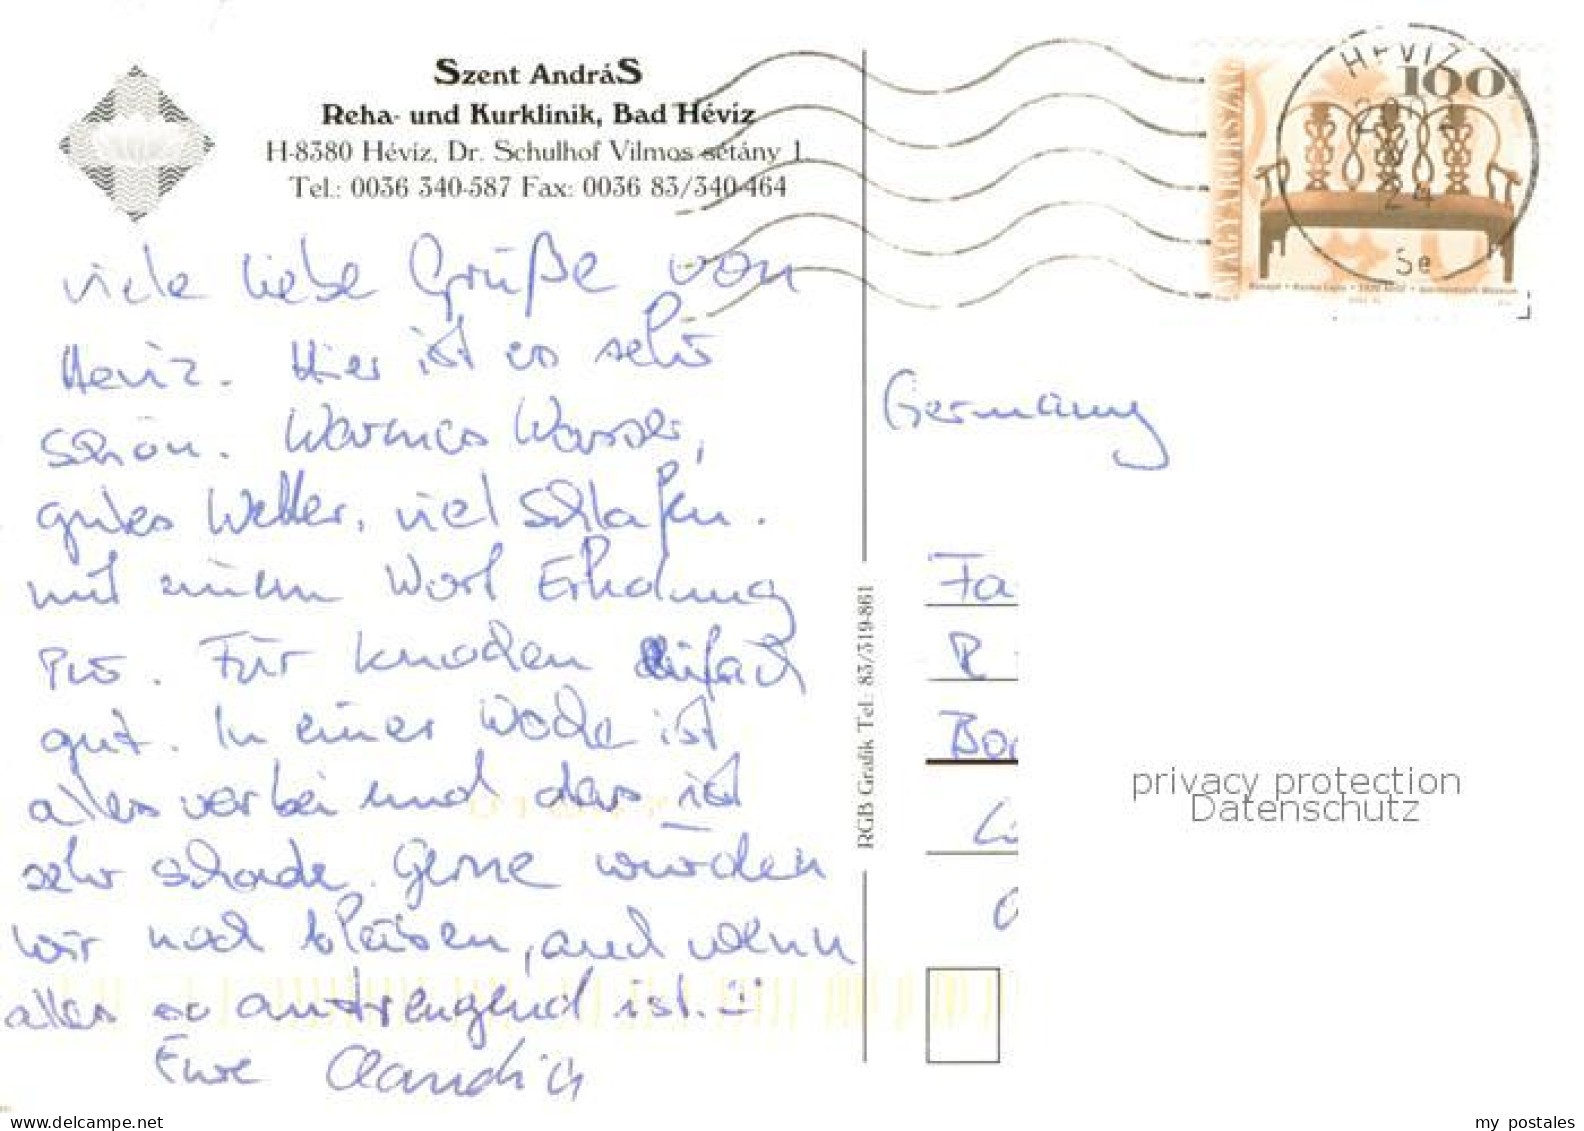 Szent AndráS
Reha- und Kurklinik, Bad Hévíz
H-8380 Hévíz, Dr. Schulhof Vilmos sétány 1.
Tel.: 0036 340-587 Fax: 0036 83/340-464
viele liebe Grüße von
Heviz. Hier ist es sehr
schön. Warmes Wasser,
gutes Wetter, viel Schlafen.
mit einem Wort Erholung
pur. Für Knochen einfach
gut. In einer Woche ist
alles vorbei und das ist
sehr schade. Gerne würden
wir noch bleiben, auch wenn
alles so anstrengend ist.
Eure Claudia
RGB Grafik Tel.: 83/319-861
HÉVÍZ
24
Se
100
MAGYARORSZÁG
Germany
Fa
R
Bor
privacy protection
Datenschutz
www.delcampe.net
my postales